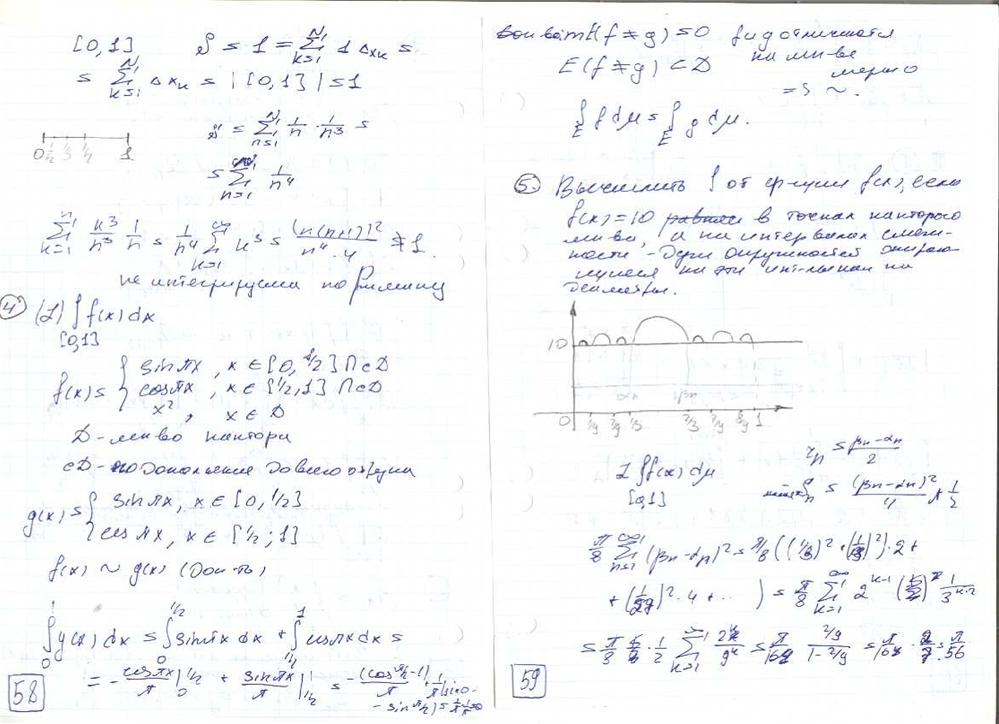 [0,1] S = 1 = Σ_{k=1}^{N} 1 Δx_k =
= Σ_{k=1}^{N} Δx_k = |[0,1]| = 1
0 1/n 1/3 1/2 1
s = Σ_{n=1}^{N} 1/n · 1/n³ =
= Σ_{n=1}^{∞} 1/n⁴
Σ_{k=1}^{n} k³/n³ · 1/n = 1/n⁴ Σ_{k=1}^{∞} k³ = (n(n+1))²/(n⁴·4) ≠ 1.
не интегрируема по Риману
4. (L) ∫ f(x) dx
[0,1]
f(x) = { sin πx, x ∈ [0, 1/2] ∩ cD
cos πx, x ∈ [1/2, 1] ∩ cD
x², x ∈ D
D - мн-во кантора
cD - дополнение до всего отрезка
g(x) = { sin πx, x ∈ [0, 1/2]
cos πx, x ∈ [1/2; 1]
f(x) ~ g(x) (Док-ть)
∫_0^1 g(x) dx = ∫_0^{1/2} sin πx dx + ∫_{1/2}^1 cos πx dx =
= - cos πx/π |_0^{1/2} + sin πx/π |_{1/2}^1 = -(cos π/2 - 1)/π + 1/π (sin 0 -
- sin π/2) = 1/π - 1/π = 0
58
mE(f ≠ g) = 0 f и g отличаются
E(f ≠ g) ⊂ D на мн-ве
меры 0
=> ~.
∫_E f dμ = ∫_E g dμ.
5. Вычислить ∫ от ф-ции f(x), если
f(x) = 10 в точках канторого
мн-ва, а на интервалах смеж-
ности - дуги окружностей опираю-
щиеся на эти инт-лы как на
диаметры.
10
αn βn
0 1/9 2/9 1/3 2/3 7/9 8/9 1
r_n = (βn - αn)/2
L ∫ f(x) dμ
[0,1]
S_n = (βn - αn)²/4 π 1/2
π/8 Σ_{n=1}^{∞} (βn - αn)² = π/8 ((1/3)² + (1/9)²)·2 +
+ (1/27)² · 4 + ... ) = π/8 Σ_{k=1}^{∞} 2^{k-1} 1/3^{k·2}
= π/8 · 1/2 Σ_{k=1}^{∞} 2^k/9^k = π/16 · (2/9)/(1 - 2/9) = π/16 · 2/7 = π/56
59